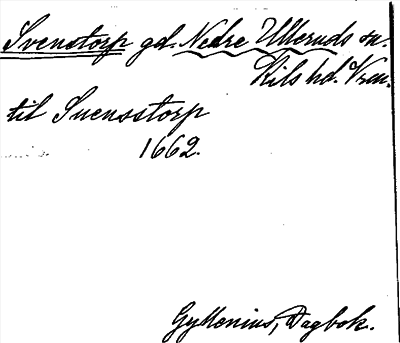 Svenstorp gd. Nedre Ulleruds sn.
Kils hd. Vrml.
til Suensstorp
1662.
Gyllenius, Dagbok.